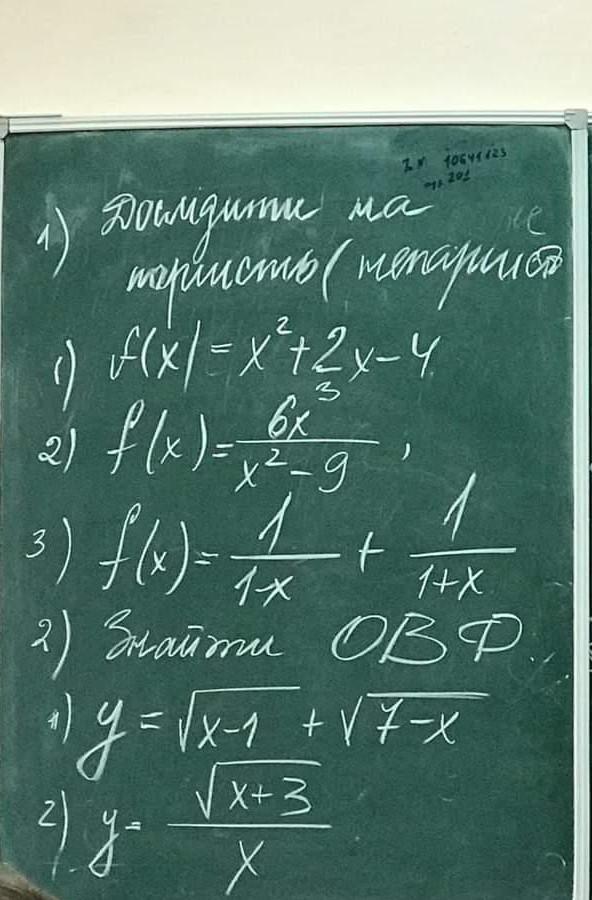 З.N 10641123
1) Дослідити на
парність (непарність
1) f(x) = x² + 2x - 4
2) f(x) = 6x³ / (x² - 9) ,
3) f(x) = 1 / (1-x) + 1 / (1+x)
2) Знайти ОВФ.
1) y = √(x-1) + √(7-x)
2) y = √(x+3) / x